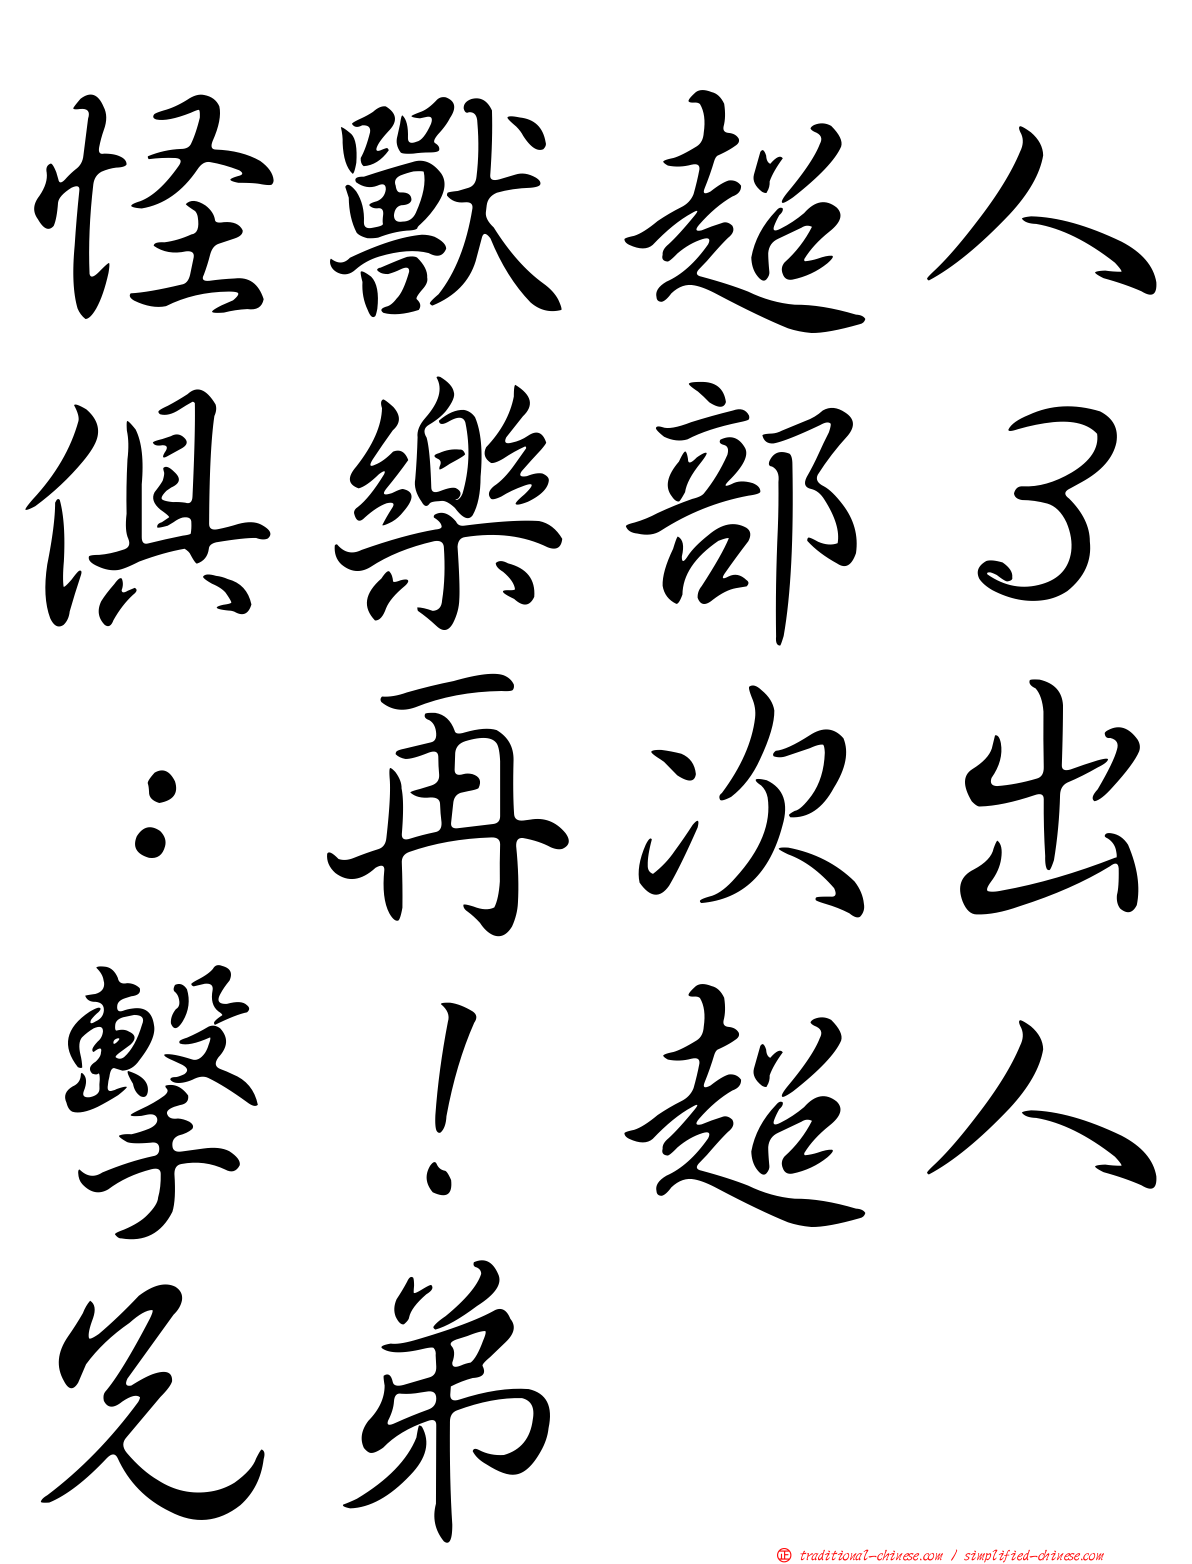 怪獸超人
俱樂部３
：再次出
擊！超人
兄弟
正 traditional-chinese.com / simplified-chinese.com